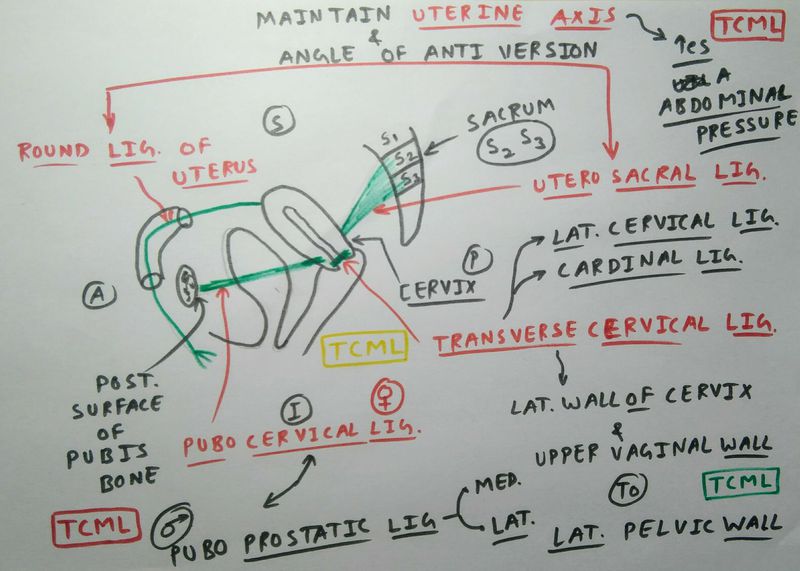 MAINTAIN UTERINE AXIS
&
ANGLE OF ANTI VERSION
TCML
↑es
A
ABDOMINAL
PRESSURE
S
ROUND LIG. OF
UTERUS
SACRUM
S2 S3
S1
S2
S3
UTERO SACRAL LIG.
LAT. CERVICAL LIG.
CARDINAL LIG.
P
CERVIX
A
TCML
TRANSVERSE CERVICAL LIG.
POST.
SURFACE
OF
PUBIS
BONE
I
♀
PUBO CERVICAL LIG.
LAT. WALL OF CERVIX
&
UPPER VAGINAL WALL
TO
TCML
LAT. PELVIC WALL
TCML
♂
PUBO PROSTATIC LIG
MED.
LAT.